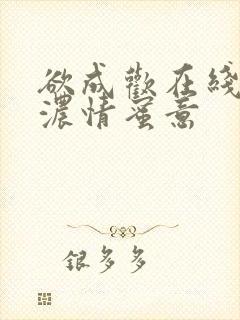 欲成歡在綫
濃情蜜意
銀多多